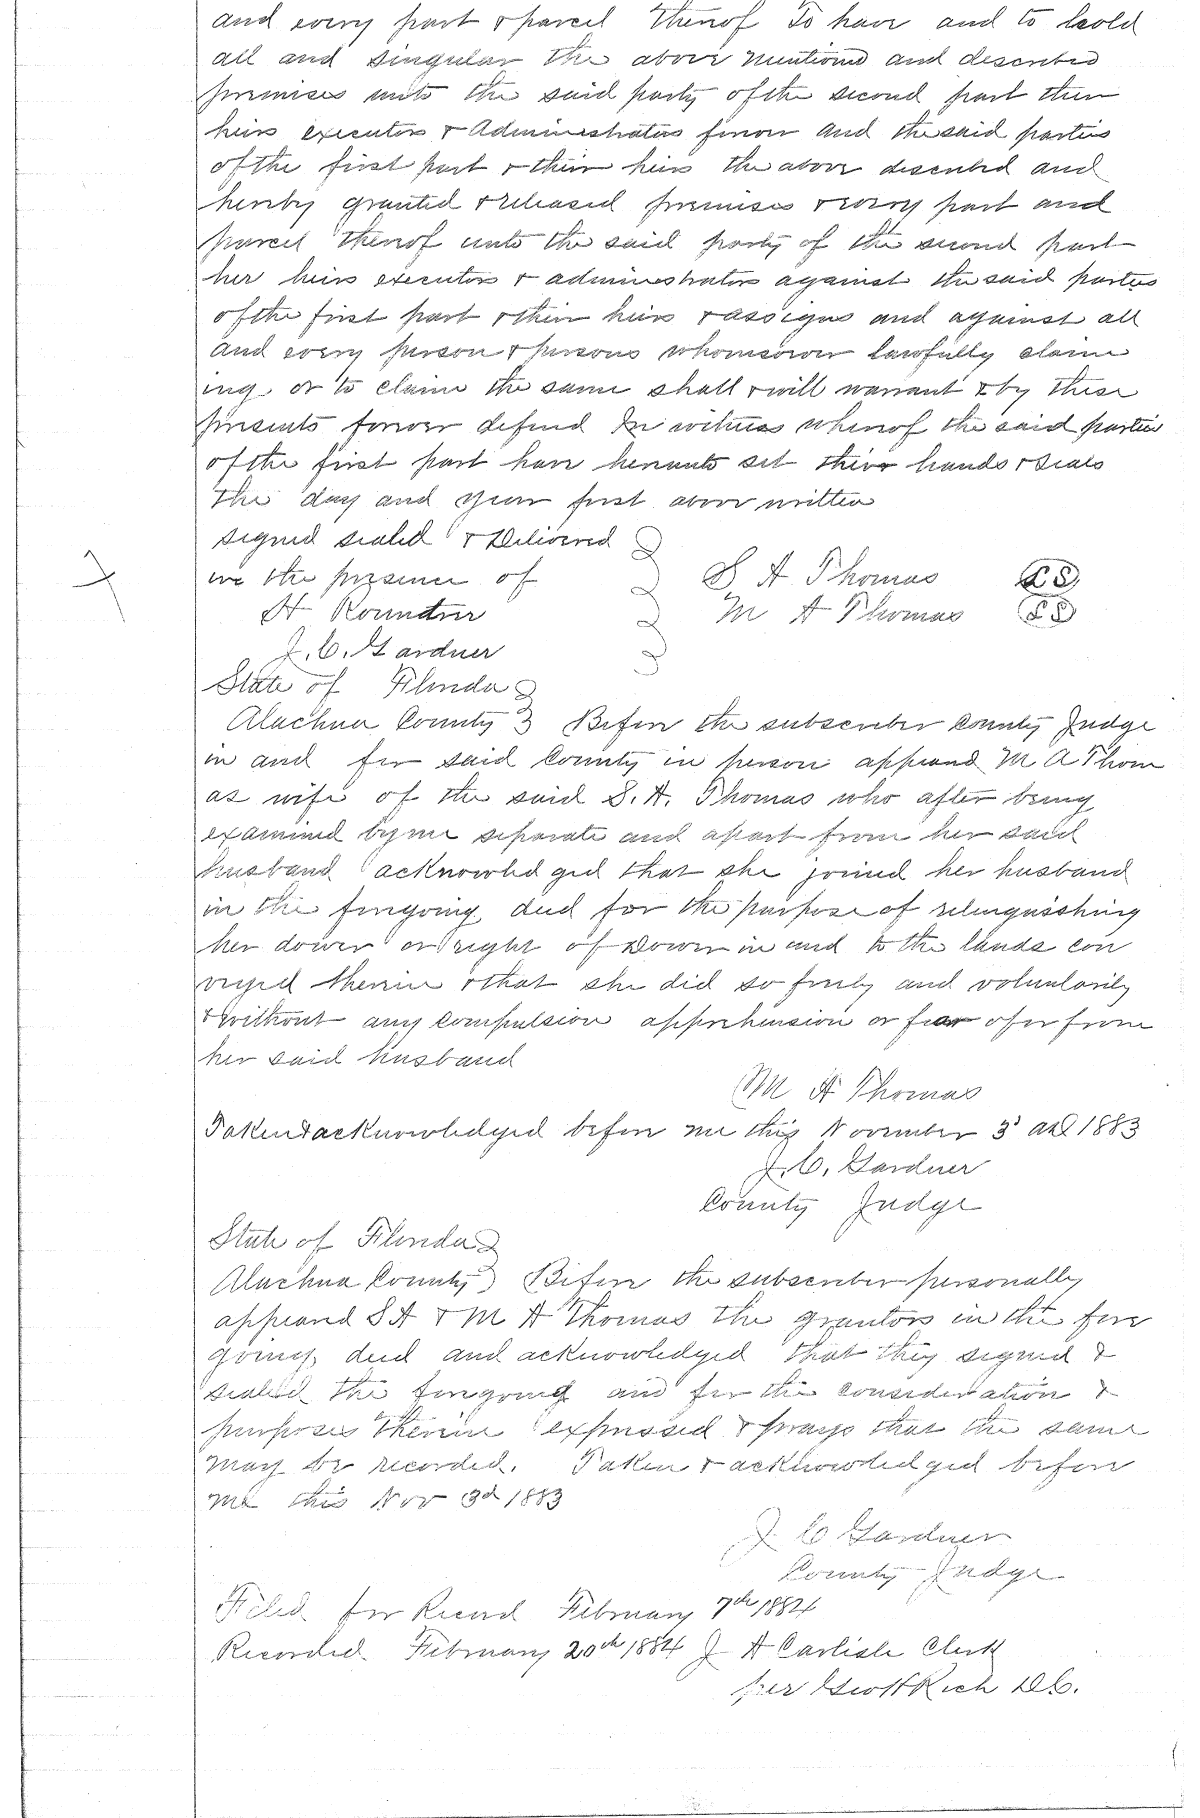 and every part & parcel thereof To have and to hold
all and singular the above mentioned and described
premises unto the said party of the second part their
heirs executors & administrators forever and the said parties
of the first part & their heirs the above described and
hereby granted & released premises & every part and
parcel thereof unto the said party of the second part
her heirs executors & administrators against the said parties
of the first part & their heirs & assigns and against all
and every person & persons whomsoever lawfully claim
ing or to claim the same shall & will warrant & by these
presents forever defend In witness whereof the said parties
of the first part have hereunto set their hands & seals
the day and year first above written
signed sealed & Delivered
in the presence of S A Thomas LS
H Roundtree M A Thomas LS
J. C. Gardner
State of Florida
Alachua County Before the subscriber County Judge
in and for said County in person appeared M A Thom
as wife of the said S. A. Thomas who after being
examined by me separate and apart from her said
husband acknowledged that she joined her husband
in the foregoing deed for the purpose of relinquishing
her dower or right of Dower in and to the lands con
veyed therein & that she did so freely and voluntarily
& without any compulsion apprehension or fear of or from
her said husband
M A Thomas
Taken & acknowledged before me this November 3d AD 1883
J. C. Gardner
County Judge
State of Florida
Alachua County Before the subscriber personally
appeared S A & M A Thomas the grantors in the fore
going deed and acknowledged that they signed &
sealed the foregoing and for the consideration &
purposes therein expressed & prays that the same
may be recorded. Taken & acknowledged before
me this Nov 3d 1883
J C Gardner
County Judge
Filed for Record February 7th 1884
Recorded February 20th 1884 J A Carlisle Clerk
per Geo H Rich D.C.